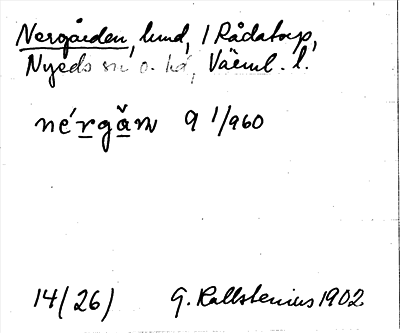 Nergården, lund, / Rådatorp,
Nyeds sn o. hd, Värml. l.
né́rgǎn 9 1/960
14(26) G. Kallstenius 1902